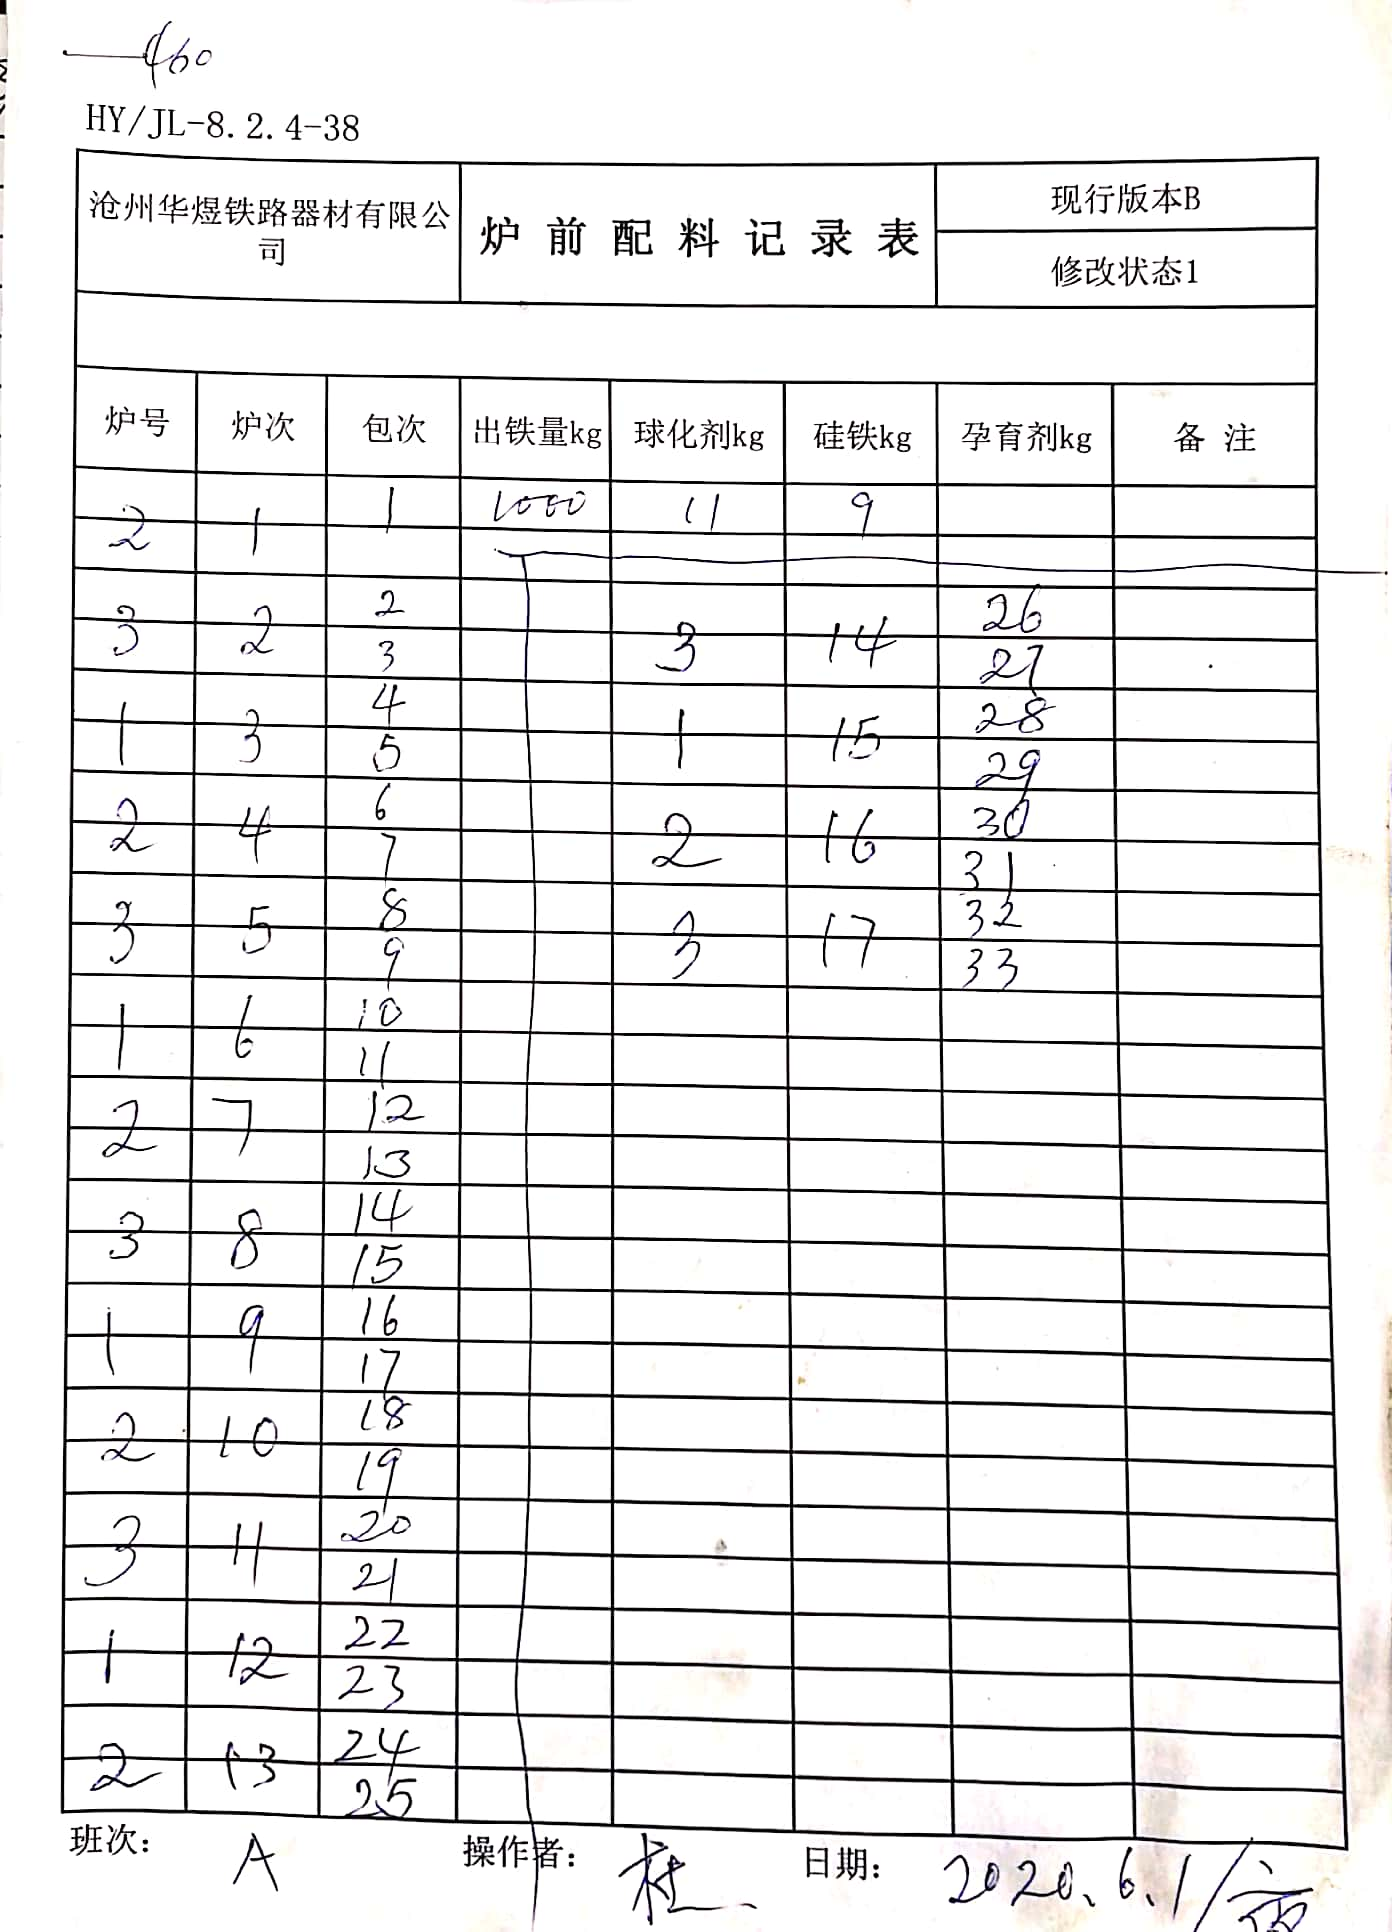 460
HY/JL-8.2.4-38
沧州华煜铁路器材有限公
司
炉前配料记录表
现行版本B
修改状态1
炉号 炉次 包次 出铁量kg 球化剂kg 硅铁kg 孕育剂kg 备注
2 1 1 1000 11 9
3 2 2 3 14 26
3 27
1 3 4 1 15 28
5 29
2 4 6 2 16 30
7 31
3 5 8 3 17 32
9 33
1 6 10
11
2 7 12
13
3 8 14
15
1 9 16
17
2 10 18
19
3 11 20
21
1 12 22
23
2 13 24
25
班次: A 操作者: 日期: 2020.6.1/